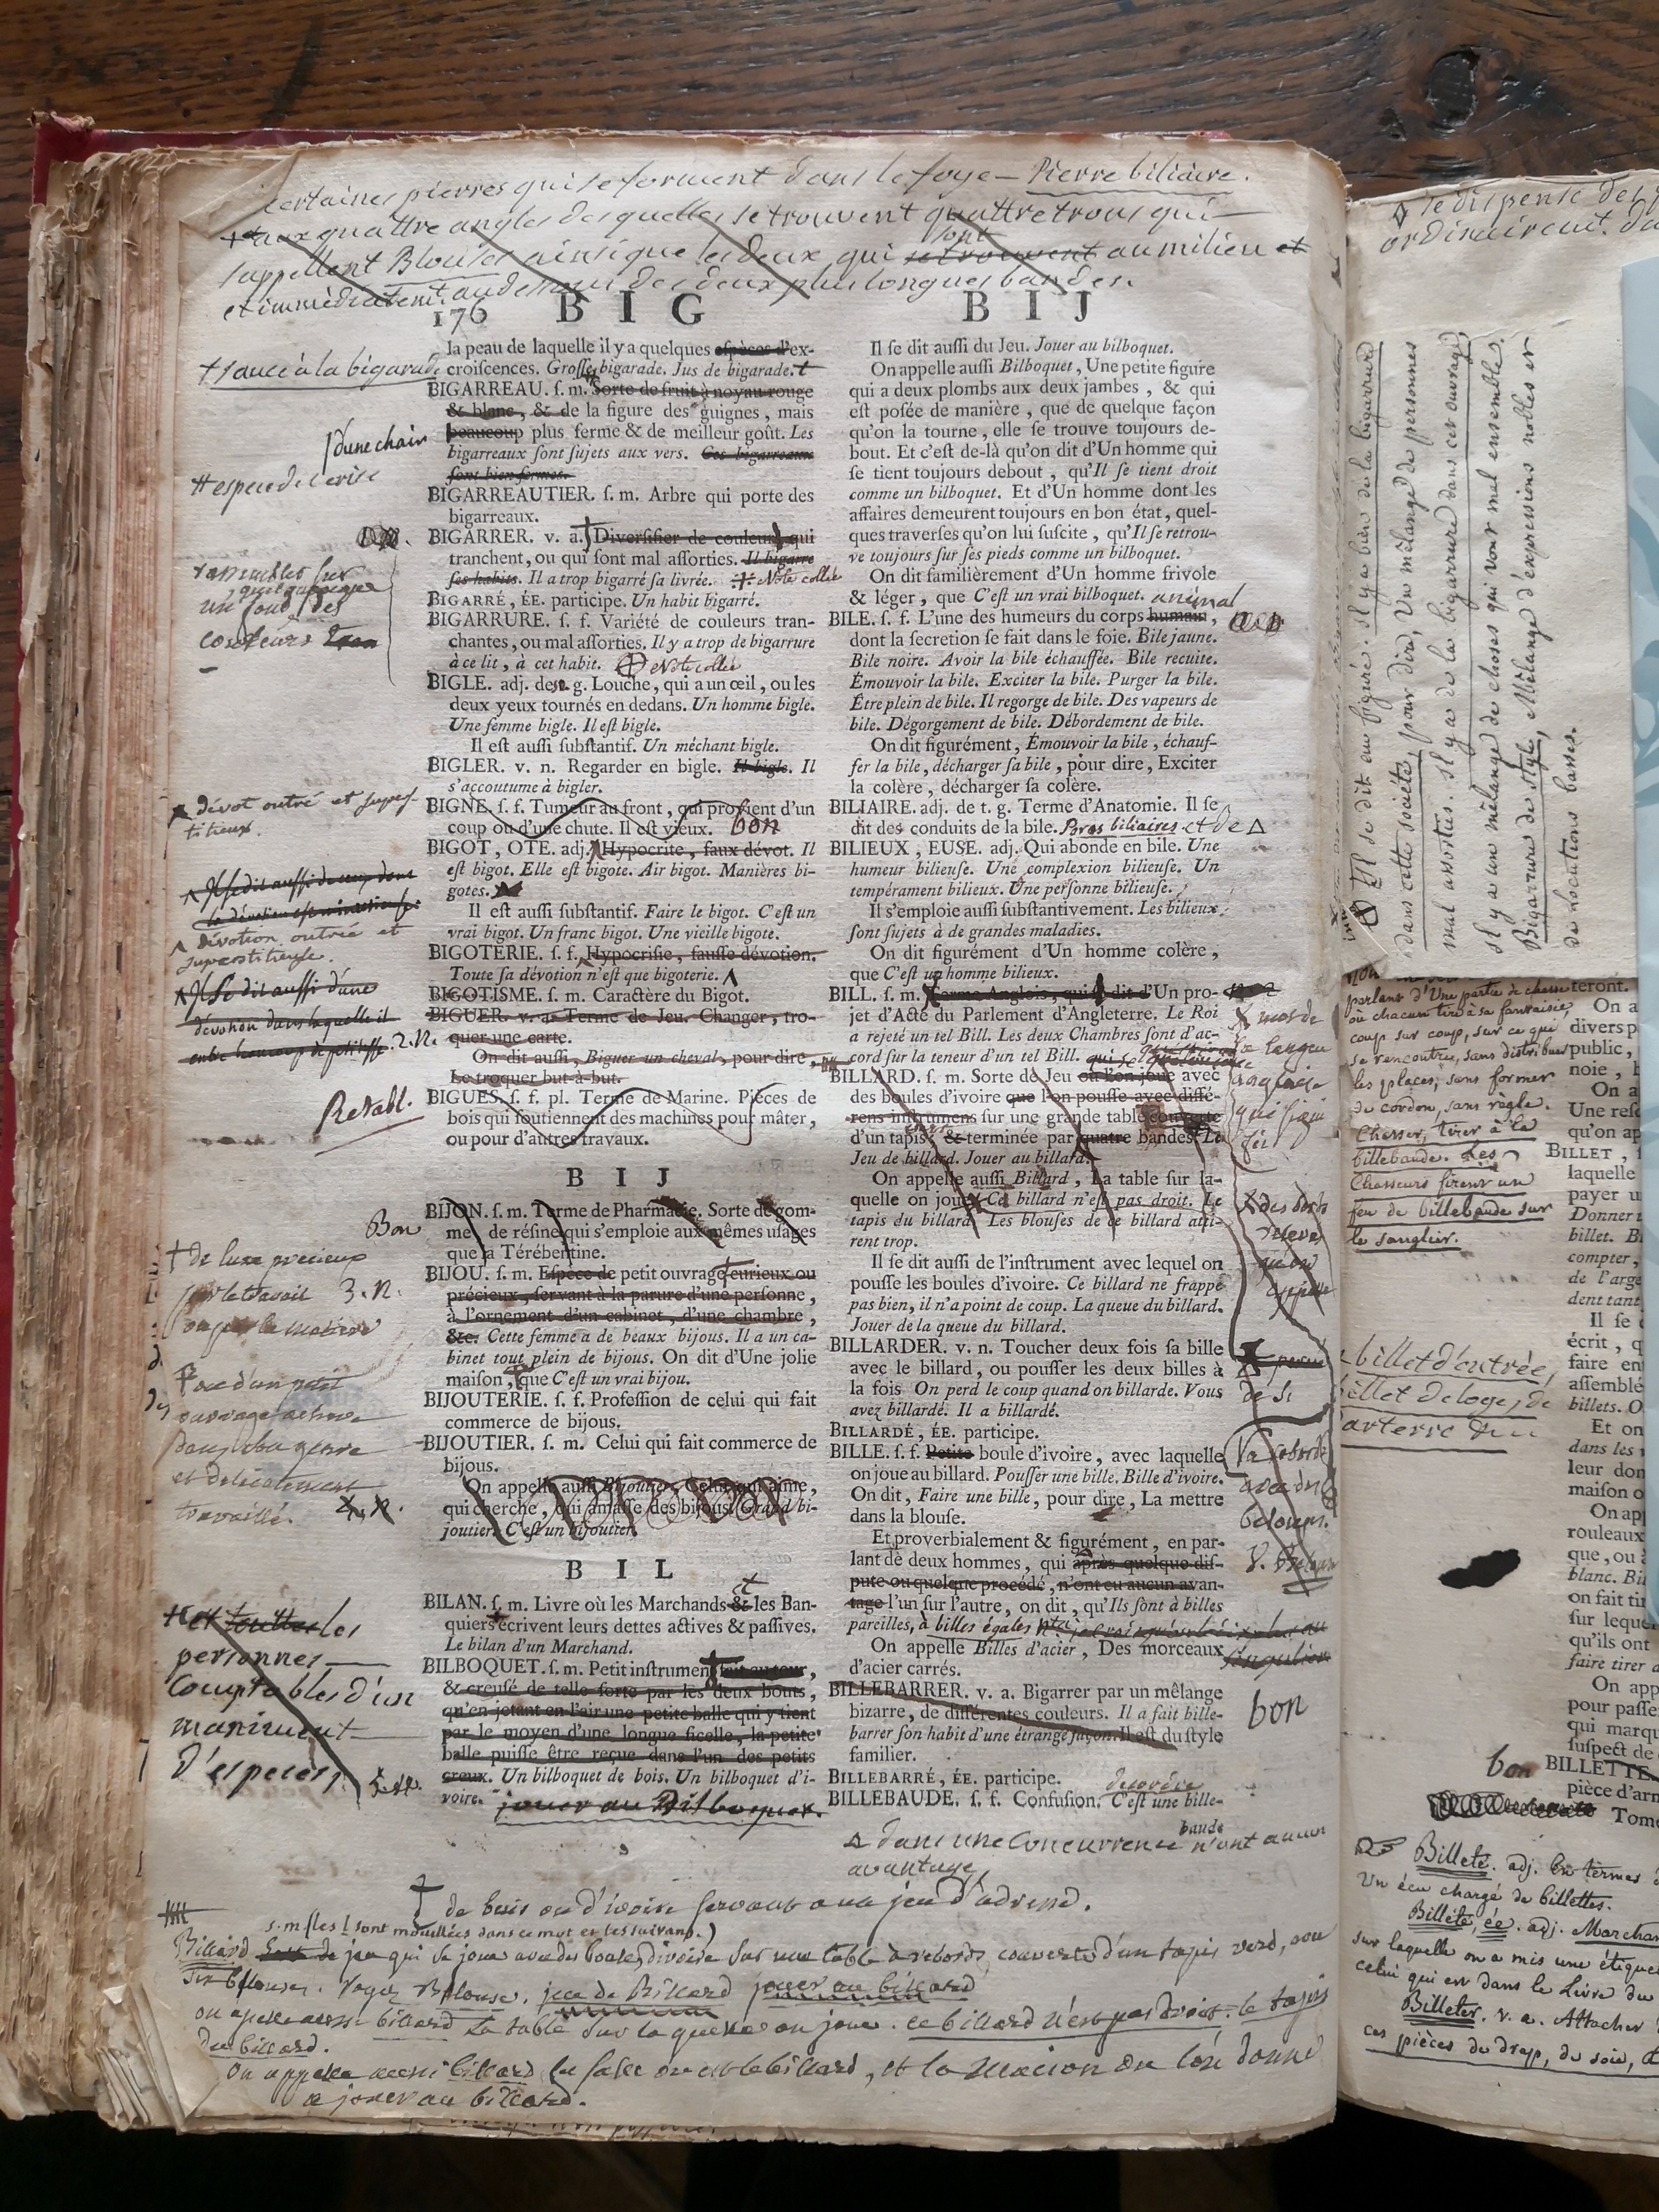 certaines pierres qui se forment dans le foye — Pierre biliaire.
aux quattre angles desquelles se trouvent quattre trous qui
s'appellent Blouses ainsi que les deux qui se trouvent sont au milieu et
et immédiatemt. au dessous des deux plus longues bandes.
176 BIG
† sauce à la bigarade
la peau de laquelle il y a quelques espèces d'ex-
croiſcences. Groſſe bigarade. Jus de bigarade. †
BIGARREAU. ſ. m. Sorte de fruit à noyau rouge
& blanc, & de la figure des guignes, mais
beaucoup plus ferme & de meilleur goût. Les
bigarreaux ſont ſujets aux vers. Ces bigarreaux
ſont bien fermes.
d'une chair
# espece de cerise
BIGARREAUTIER. ſ. m. Arbre qui porte des
bigarreaux.
BIGARRER. v. a. Diverſifier de couleurs qui
tranchent, ou qui ſont mal aſſorties. Il bigarre
ſes habits. Il a trop bigarré ſa livrée. Note collée
rassembler sur
un fond des
couleurs
BIGARRÉ, ÉE. participe. Un habit bigarré.
BIGARRURE. ſ. f. Variété de couleurs tran-
chantes, ou mal aſſorties. Il y a trop de bigarrure
à ce lit, à cet habit. Note collée
BIGLE. adj. de t. g. Louche, qui a un œil, ou les
deux yeux tournés en dedans. Un homme bigle.
Une femme bigle. Il eſt bigle.
Il eſt auſſi ſubſtantif. Un méchant bigle.
BIGLER. v. n. Regarder en bigle. Il bigle. Il
s'accoutume à bigler.
BIGNE. ſ. f. Tumeur au front, qui provient d'un
coup ou d'une chute. Il eſt vieux. bon
dévot outré et supers-
titieux.
BIGOT, OTE. adj. Hypocrite, faux dévot. Il
eſt bigot. Elle eſt bigote. Air bigot. Manières bi-
gotes.
Il se dit aussi de ceux dont
la dévotion est minutieuse
Il eſt auſſi ſubſtantif. Faire le bigot. C'eſt un
vrai bigot. Un franc bigot. Une vieille bigote.
dévotion outrée et
superstitieuse.
BIGOTERIE. ſ. f. Hypocriſie, fauſſe dévotion.
Toute ſa dévotion n'eſt que bigoterie.
Il se dit aussi d'une
dévotion dans laquelle il
entre beaucoup de petitesse. 2. n.
BIGOTISME. ſ. m. Caractère du Bigot.
BIGUER. v. a. Terme de Jeu. Changer, tro-
quer une carte.
On dit auſſi, Biguer un cheval, pour dire,
Le troquer but-à-but.
Retabl.
BIGUES. ſ. f. pl. Terme de Marine. Pièces de
bois qui ſoutiennent des machines pour mâter,
ou pour d'autres travaux.
BIJ
BIJON. ſ. m. Terme de Pharmacie. Sorte de gom-
me, de réſine qui s'emploie aux mêmes uſages
que la Térébentine.
Bon
BIJOU. ſ. m. Eſpèce de petit ouvrage curieux ou
précieux, ſervant à la parure d'une perſonne,
à l'ornement d'un cabinet, d'une chambre,
&c. Cette femme a de beaux bijous. Il a un ca-
binet tout plein de bijous. On dit d'Une jolie
maiſon, que C'eſt un vrai bijou.
† de luxe precieux
par le travail 3. n.
ou par la matiere
BIJOUTERIE. ſ. f. Profeſſion de celui qui fait
commerce de bijous.
BIJOUTIER. ſ. m. Celui qui fait commerce de
bijous.
et delicatement
travaillé. 4. n.
On appelle auſſi Bijoutier, Celui qui aime,
qui cherche, qui amaſſe des bijous. Grand bi-
joutier. C'eſt un bijoutier.
BIL
BILAN. ſ. m. Livre où les Marchands & les Ban-
quiers écrivent leurs dettes actives & paſſives.
Le bilan d'un Marchand.
et toutes les
personnes
Comptables d'un
maniment
d'especes,
BILBOQUET. ſ. m. Petit inſtrument fait au tour,
& creuſé de telle ſorte par les deux bouts,
qu'en jetant en l'air une petite balle qui y tient
par le moyen d'une longue ficelle, la petite
balle puiſſe être reçue dans l'un des petits
creux. Un bilboquet de bois. Un bilboquet d'i-
voire. jouer au Bilboquet.
BIJ
Il ſe dit auſſi du Jeu. Jouer au bilboquet.
On appelle auſſi Bilboquet, Une petite figure
qui a deux plombs aux deux jambes, & qui
eſt poſée de manière, que de quelque façon
qu'on la tourne, elle ſe trouve toujours de-
bout. Et c'eſt de-là qu'on dit d'Un homme qui
ſe tient toujours debout, qu'Il ſe tient droit
comme un bilboquet. Et d'Un homme dont les
affaires demeurent toujours en bon état, quel-
ques traverſes qu'on lui ſuſcite, qu'Il ſe retrou-
ve toujours ſur ſes pieds comme un bilboquet.
On dit familièrement d'Un homme frivole
& léger, que C'eſt un vrai bilboquet.
animal
BILE. ſ. f. L'une des humeurs du corps humain,
dont la ſecretion ſe fait dans le foie. Bile jaune.
Bile noire. Avoir la bile échauffée. Bile recuite.
Émouvoir la bile. Exciter la bile. Purger la bile.
Être plein de bile. Il regorge de bile. Des vapeurs de
bile. Dégorgement de bile. Débordement de bile.
On dit figurément, Émouvoir la bile, échauf-
fer la bile, décharger ſa bile, pour dire, Exciter
la colère, décharger ſa colère.
BILIAIRE. adj. de t. g. Terme d'Anatomie. Il ſe
dit des conduits de la bile. Pores biliaires et de Δ
BILIEUX, EUSE. adj. Qui abonde en bile. Une
humeur bilieuſe. Une complexion bilieuſe. Un
tempérament bilieux. Une perſonne bilieuſe.
Il s'emploie auſſi ſubſtantivement. Les bilieux
ſont ſujets à de grandes maladies.
On dit figurément d'Un homme colère,
que C'eſt un homme bilieux.
BILL. ſ. m. Terme Anglois, qui ſe dit d'Un pro-
jet d'Acte du Parlement d'Angleterre. Le Roi
a rejeté un tel Bill. Les deux Chambres ſont d'ac-
cord ſur la teneur d'un tel Bill.
mot de
la langue
anglaise
qui signi
fie
BILLARD. ſ. m. Sorte de Jeu où l'on joue avec
des boules d'ivoire que l'on pouſſe avec diffé-
rens inſtrumens ſur une grande table couverte
d'un tapis, & terminée par quatre bandes. Le
Jeu de billard. Jouer au billard.
On appelle auſſi Billard, La table ſur la-
quelle on joue. Ce billard n'eſt pas droit. Le
tapis du billard. Les blouſes de ce billard atti-
rent trop.
Il ſe dit auſſi de l'inſtrument avec lequel on
pouſſe les boules d'ivoire. Ce billard ne frappe
pas bien, il n'a point de coup. La queue du billard.
Jouer de la queue du billard.
BILLARDER. v. n. Toucher deux fois ſa bille
avec le billard, ou pouſſer les deux billes à
la fois. On perd le coup quand on billarde. Vous
avez billardé. Il a billardé.
BILLARDÉ, ÉE. participe.
BILLE. ſ. f. Petite boule d'ivoire, avec laquelle
on joue au billard. Pouſſer une bille. Bille d'ivoire.
On dit, Faire une bille, pour dire, La mettre
dans la blouſe.
Et proverbialement & figurément, en par-
lant de deux hommes, qui après quelque diſ-
pute ou quelque procédé, n'ont eu aucun avan-
tage l'un ſur l'autre, on dit, qu'Ils ſont à billes
pareilles, à billes égales
On appelle Billes d'acier, Des morceaux
d'acier carrés.
BILLEBARRER. v. a. Bigarrer par un mêlange
bizarre, de différentes couleurs. Il a fait bille-
barrer ſon habit d'une étrange façon. Il eſt du style
familier.
bon
BILLEBARRÉ, ÉE. participe.
desordre
BILLEBAUDE. ſ. f. Confuſion. C'eſt une bille-
baude
Δ dans une Concurrence n'ont aucun
avantage,
† de buis ou d'ivoire servant a un jeu d'adresse.
s. m. (les l sont mouillées dans ce mot et les suivans.)
Billard jeu qui se joue avec des boules d'ivoire sur une table à rebords, couverte d'un tapis verd, avec
six belouses. Voyez Belouse. jeu de Billard jouer au billard
on appelle aussi billard La table sur laquelle on joue. ce billard n'est pas droit. le tapis
du billard.
On appelle aussi billard la salle ou est le billard, et la maison ou l'on donne
a jouer au billard.
se dispense des
ordinairemt.
Il se dit au figuré. Il y a bien de la bigarrure
dans cette société, pour dire, Un mêlange de personnes
mal assorties. Il y a de la bigarrure dans cet ouvrage,
il y a un mêlange de choses qui vont mal ensemble.
Bigarrure de style, Mêlange d'expressions nobles et
de locutions basses.
parlant d'Une partie de chasse
où chacun tire à sa fantaisie,
coup sur coup, sur ce qui
se rencontre, sans distribuer
les places, sans former
de cordon, sans règle.
Chasser, tirer à la
billebaude. Les
Chasseurs firent un
feu de billebaude sur
le sanglier.
billet d'entrée,
billet de loge, de
parterre
teront.
On a
divers p
public,
noie, 
On a
Une reſc
qu'on ap
BILLET,
laquelle
payer u
Donner
billet. B
compter,
de l'arge
dent tant
Il ſe
écrit, q
faire en
aſſemblé
billets. O
Et on
dans les
leur don
maiſon o
On ap
rouleaux
que, ou
blanc. Bi
on fait tir
ſur leque
qu'ils ont
faire tirer
On app
pour paſſe
qui marqu
ſuſpect de
bon BILLETTE.
pièce d'arm
Tome
Billeté. adj. En termes
Un écu chargé de billettes.
Billeté, ée. adj. Marchan
sur laquelle on a mis une étique
celui qui est dans le Livre du
Billeter. v. a. Attacher
ces pièces de drap, de soie,